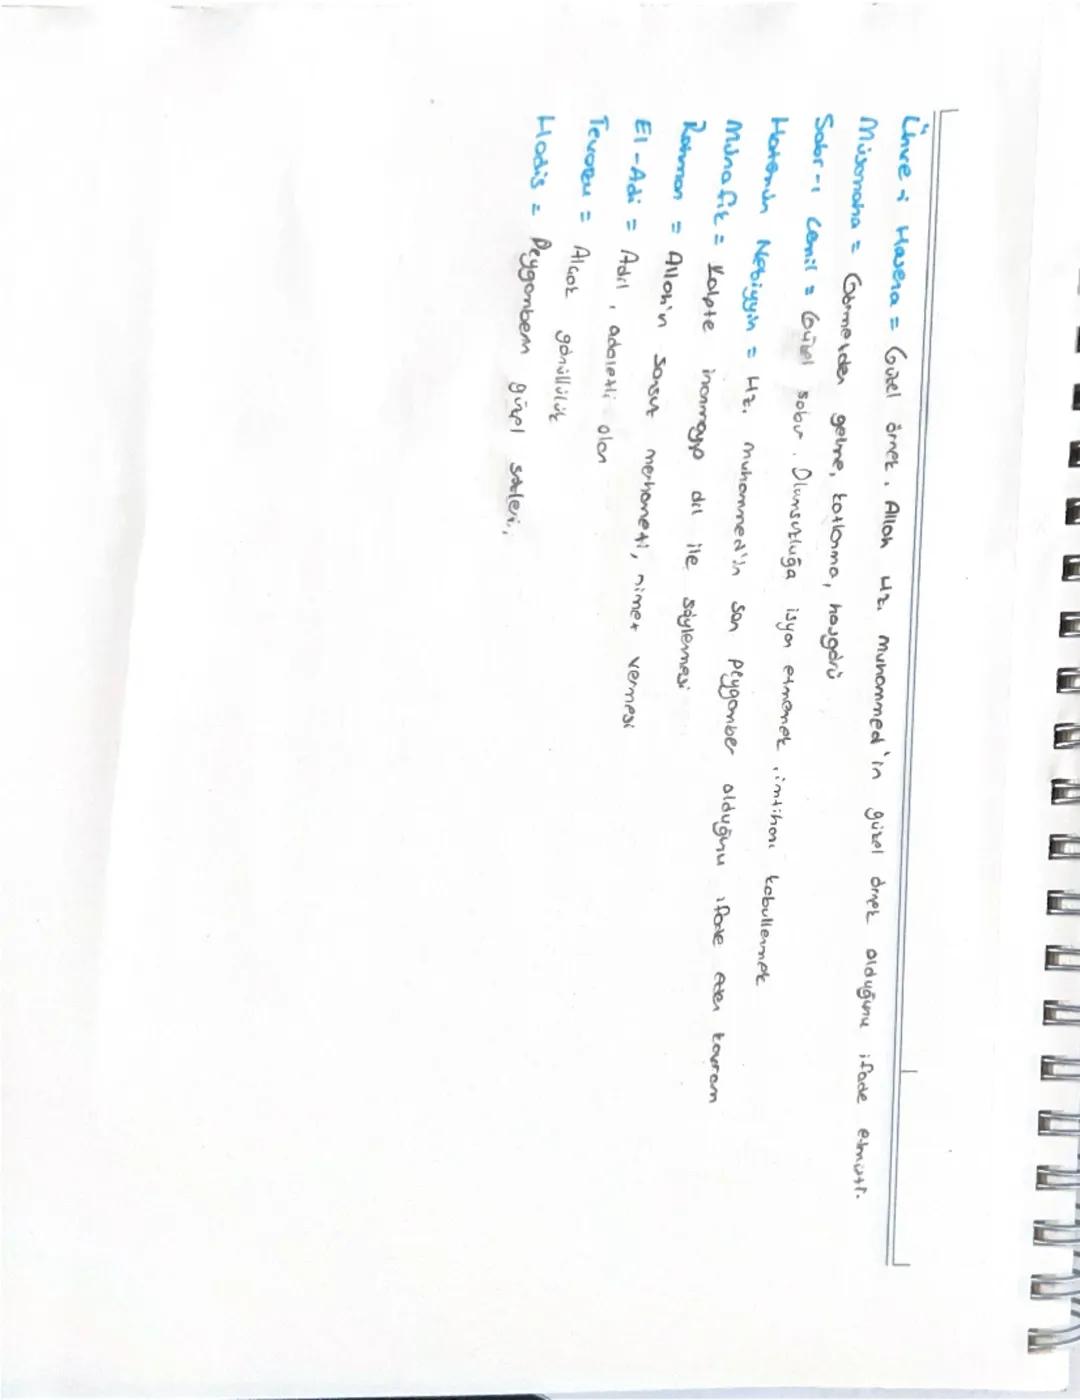 Üsve-i Hasena = Güzel örnek, Allah Hz. Muhammed'in güzel örnek olduğunu ifade etmiştir.
Müsamaha = Görmezden gelme, katlanma, hoşgörü
Sabr-ı Cemil = Güzel sabır. Olumsuzluğa isyan etmemek, imtihanı kabullenmek
Hatemün Nebiyyin = Hz. Muhammed'in son peygamber olduğunu ifade eden kavram
Münafık = Kalpte inanmayıp dil ile söylemesi
Rahman = Allah'ın sonsuz merhameti, nimet vermesi
El-Adl = Adil, adaletli olan
Tevazu = Alçak gönüllülük
Hadis = Peygamberin güzel sözleri,